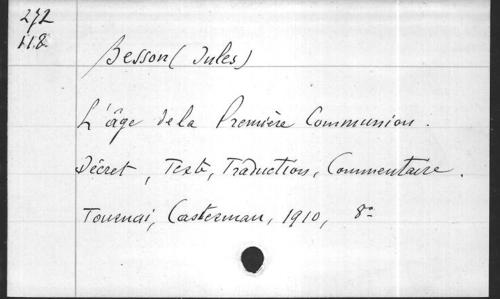 272
118
Besson (Jules)
L'âge de la Première Communion.
Décret, Texte, Traduction, Commentaire.
Tournai, Casterman, 1910, 8º